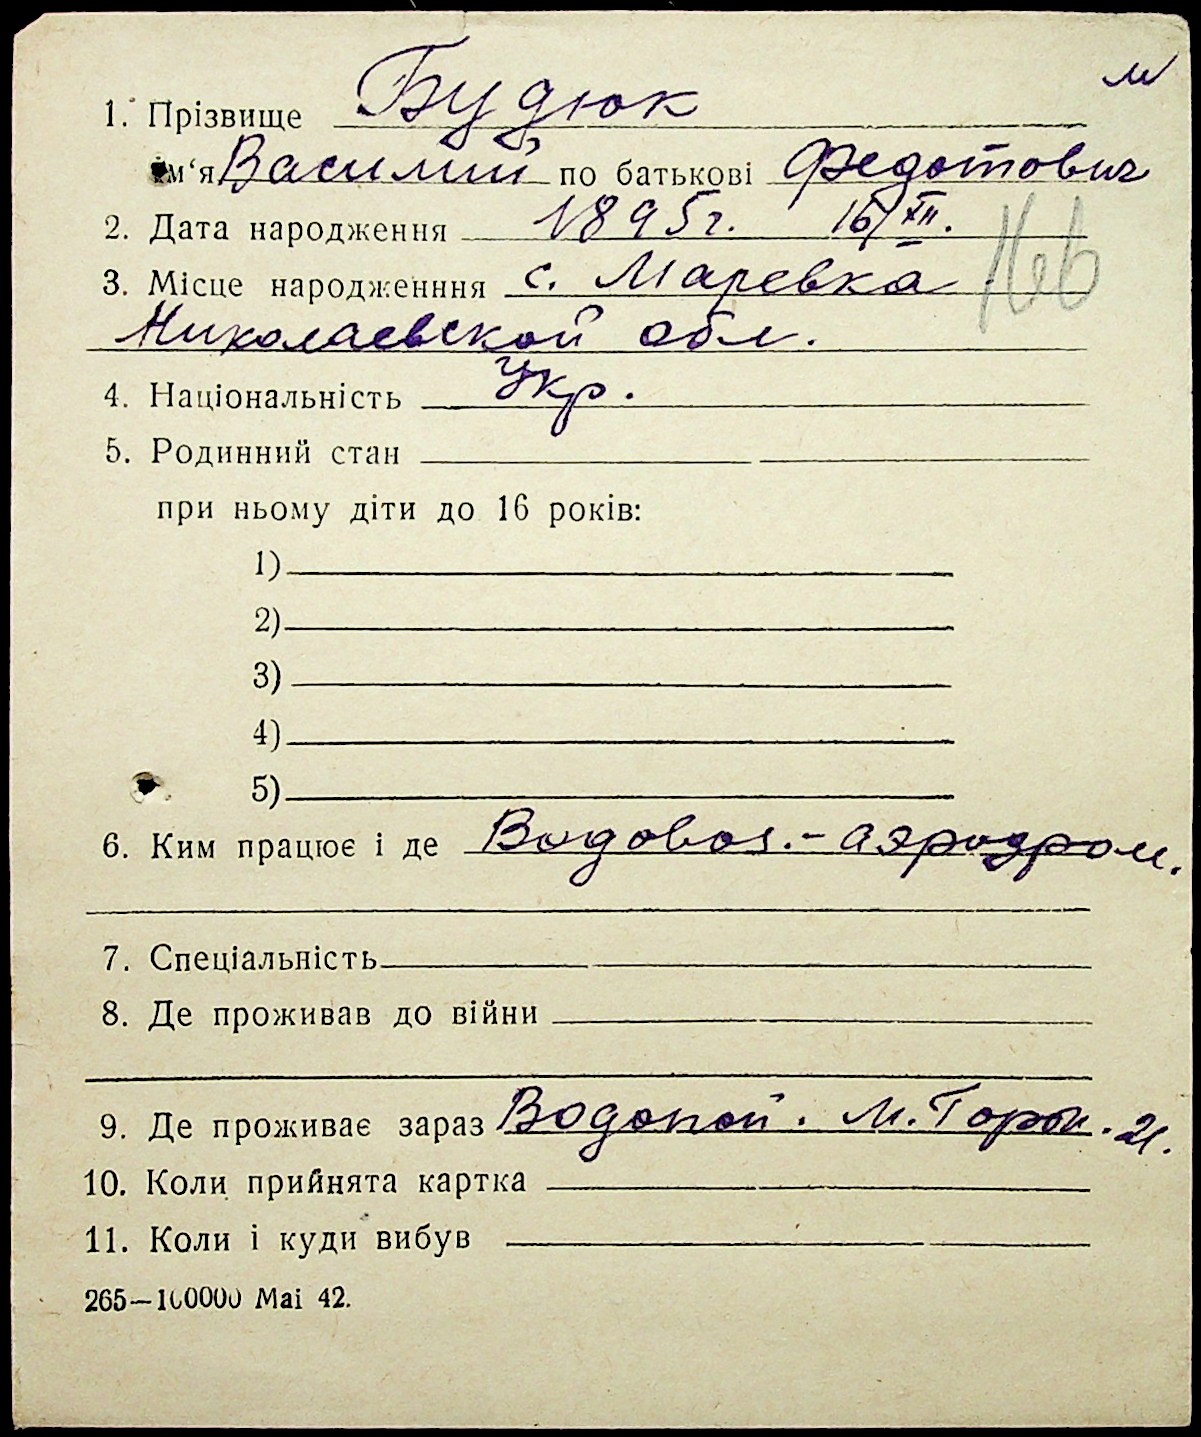 м
1. Прізвище Будюк
ім‘я Василий по батькові Федотович
2. Дата народження 1895г. 16/XII.
3. Місце народженння с. Маревка
Николаевской обл.
4. Національність Укр.
5. Родинний стан
при ньому діти до 16 років:
1)
2)
3)
4)
5)
6. Ким працює і де Водовоз. - аэродром.
7. Спеціальність
8. Де проживав до війни
9. Де проживає зараз Водопой. М. Горьк. 21.
10. Коли прийнята картка
11. Коли і куди вибув
265—100000 Mai 42.